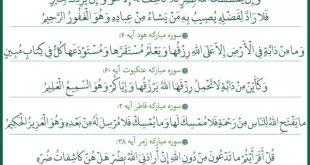 فَلا رَادَّ لِفَضْلِهِ يُصيبُ بِهِ مَنْ يَشاءُ مِنْ عِبادِهِ وَهُوَ الْغَفُورُ الرَّحيمُ
سوره مبارکه هود آیه ۶
وَما مِنْ دابَّةٍ فِي الْأَرْضِ إِلاَّ عَلَى اللَّهِ رِزْقُها وَيَعْلَمُ مُسْتَقَرَّها وَمُسْتَوْدَعَها كُلٌّ في كِتابٍ مُبينٍ
سوره مبارکه عنکبوت آیه ۶۰
وَكَأَيِّنْ مِنْ دَابَّةٍ لاتَحْمِلُ رِزْقَهَا اللَّهُ يَرْزُقُها وَإِيَّاكُمْ وَهُوَ السَّميعُ الْعَليمُ
سوره مبارکه فاطر آیه ۲
ما يَفْتَحِ اللَّهُ لِلنَّاسِ مِنْ رَحْمَةٍ فَلا مُمْسِكَ لَها وَما يُمْسِكْ فَلا مُرْسِلَ لَهُ مِنْ بَعْدِهِ وَهُوَ الْعَزيزُ الْحَكيمُ
سوره مبارکه زمر آیه ۳۸
قُلْ أَفَرَأَيْتُمْ ما تَدْعُونَ مِنْ دُونِ اللَّهِ إِنْ أَرادَنِيَ اللَّهُ بِضُرٍّ هَلْ هُنَّ كاشِفاتُ ضُرِّهِ